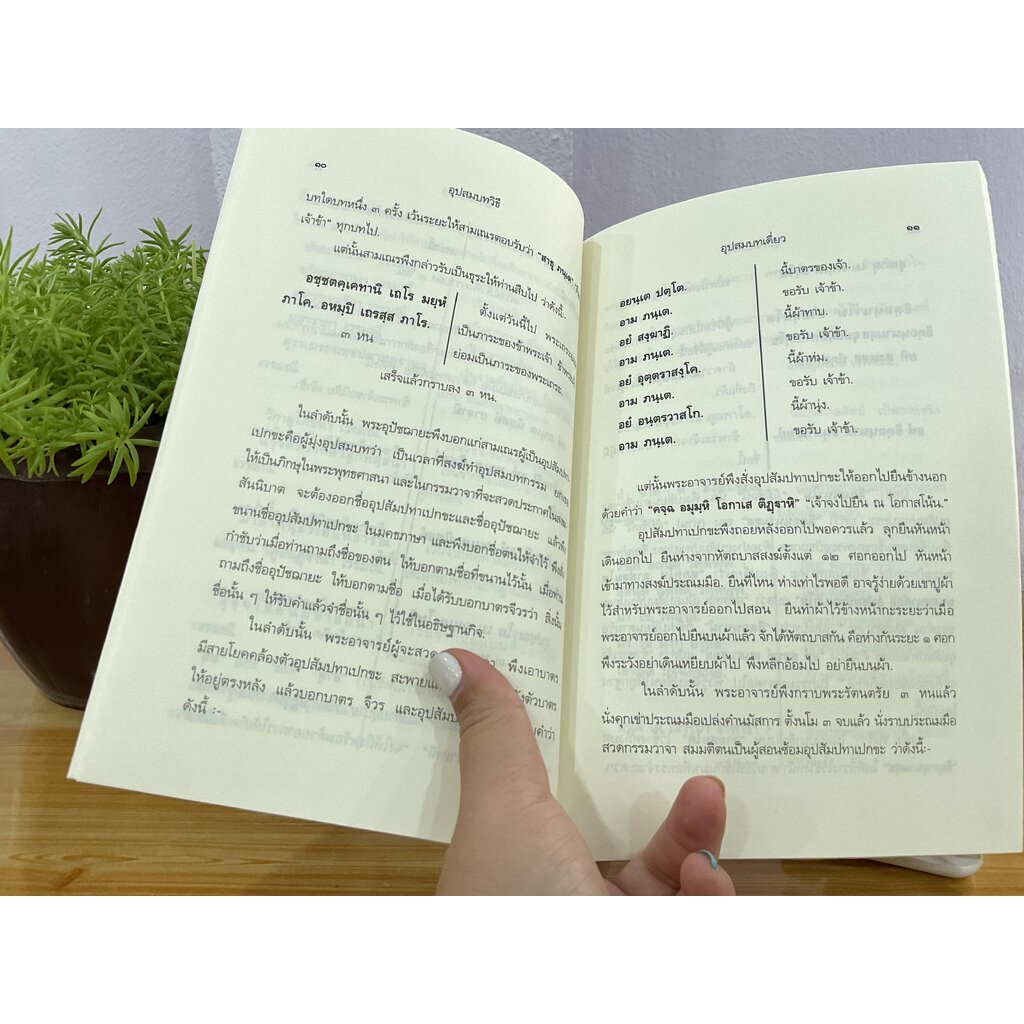 ๑๐
อุปสมบทวิธี
บทใดบทหนึ่ง ๓ ครั้ง เว้นระยะให้สามเณรตอบรับว่า "สาธุ ภนฺเต"
เจ้าข้า" ทุกบทไป.
แต่นั้นสามเณรพึงกล่าวรับเป็นธุระให้ท่านสืบไป ว่าดังนี้:-
อชฺชตคฺเคทานิ เถโร มยฺหํ
ภาโค, อหมฺปิ เถรสฺส ภาโร.
๓ หน
ตั้งแต่วันนี้ไป พระเถระ
เป็นภาระของข้าพระเจ้า
ย่อมเป็นภาระของพระเถระ.
เสร็จแล้วกราบลง ๓ หน.
ในลำดับนั้น พระอุปัชฌายะพึงบอกแก่สามเณรผู้เป็นอุปสัมปทา
เปกขะคือผู้มุ่งอุปสมบทว่า เป็นเวลาที่สงฆ์ทำอุปสมบทกรรม
ให้เป็นภิกษุในพระพุทธศาสนา และในกรรมวาจาที่จะสวดประกาศใน
สันนิบาต จะต้องออกชื่ออุปสัมปทาเปกขะและชื่ออุปัชฌายะ แล้วพึง
ขนานชื่ออุปสัมปทาเปกขะ ในมคธภาษา และพึงบอกชื่อตนให้จำไว้
กำชับว่าเมื่อท่านถามถึงชื่อของตน ให้บอกตามชื่อที่ขนานไว้นั้น เมื่อท่าน
ถามถึงชื่ออุปัชฌายะ ให้บอกตามชื่อ เมื่อได้รับบอกบาตรจีวรว่า สิ่งนั้น
ชื่อนั้น ๆ ให้รับคำแล้วจำชื่อนั้น ๆ ไว้ใช้ในอธิษฐานกิจ.
ในลำดับนั้น พระอาจารย์ผู้จะสวด พึงเอาบาตร
มีสายโยคคล้องตัวอุปสัมปทาเปกขะ สะพาย ตัวบาตร
ให้อยู่ตรงหลัง แล้วบอกบาตร จีวร และอุปสัมป คำว่า
ดังนี้ :-
๑๑
อุปสมบทเดี่ยว
อยนฺเต ปตฺโต. นี้บาตรของเจ้า.
อาม ภนฺเต. ขอรับ เจ้าข้า.
อยํ สงฺฆาฏิ. นี้ผ้าทาบ.
อาม ภนฺเต. ขอรับ เจ้าข้า.
อยํ อุตฺตราสงฺโค. นี้ผ้าห่ม.
อาม ภนฺเต. ขอรับ เจ้าข้า.
อยํ อนฺตรวาสโก. นี้ผ้านุ่ง.
อาม ภนฺเต. ขอรับ เจ้าข้า.
แต่นั้นพระอาจารย์พึงสั่งอุปสัมปทาเปกขะให้ออกไปยืนข้างนอก
ด้วยคำว่า "คจฺฉ อมุมฺหิ โอกาเส ติฏฺฐาหิ" "เจ้าจงไปยืน ณ โอกาสโน้น."
อุปสัมปทาเปกขะพึงถอยหลังออกไปพอควรแล้ว ลุกยืนหันหน้า
เดินออกไป ยืนห่างจากหัตถบาสสงฆ์ตั้งแต่ ๑๒ ศอกออกไป หันหน้า
เข้ามาทางสงฆ์ประณมมือ. ยืนที่ไหน ห่างเท่าไรพอดี อาจรู้ง่ายด้วยเขาปูผ้า
ไว้สำหรับพระอาจารย์ออกไปสอน ยืนทำผ้าไว้ข้างหน้ากะระยะว่าเมื่อ
พระอาจารย์ออกไปยืนบนผ้าแล้ว จักได้หัตถบาสกัน คือห่างกันระยะ ๑ ศอก
พึงระวังอย่าเดินเหยียบผ้าไป พึงหลีกอ้อมไป อย่ายืนบนผ้า.
ในลำดับนั้น พระอาจารย์พึงกราบพระรัตนตรัย ๓ หนแล้ว
นั่งคุกเข่าประณมมือเปล่งคำนมัสการ ตั้งนโม ๓ จบแล้ว นั่งราบประณมมือ
สวดกรรมวาจา สมมติตนเป็นผู้สอนซ้อมอุปสัมปทาเปกขะ ว่าดังนี้:-